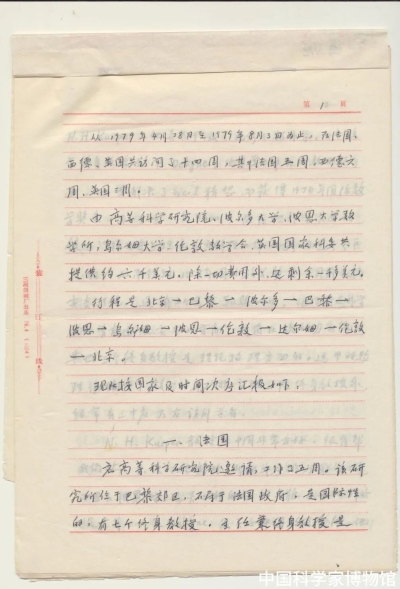 第 1 页
从1979年4月28日至1979年8月3日为止,在法国,
西德,英国共访问了十四周,其中法国五周,西德六
周,英国三周。
由高等科学研究院,波尔多大学,波恩大学数
学所,乌尔姆大学,伦敦数学会,英国国家科委共
提供约六千美元。除一切费用外,还剩余一千多美元。
行程是北京→巴黎→波尔多→巴黎→
波恩→乌尔姆→波恩→伦敦→达尔姆→伦敦
→北京。
现按国家及时间次序汇报如下。
一、法国
应高等科学研究院邀请,工作了五周。该研
究所位于巴黎郊区,不属于法国政府,是国际性
的,有七个终身教授。主任兼终身教授是
装订线
中国科学家博物馆